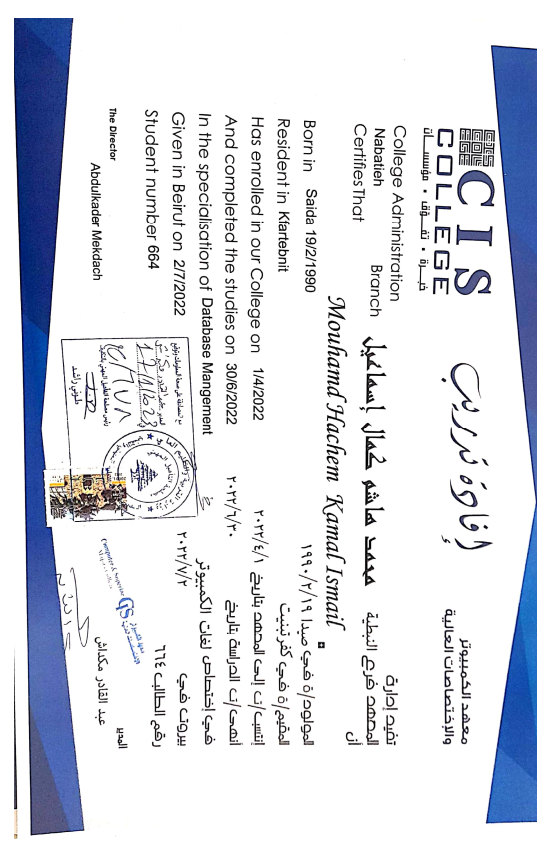 CIS
COLLEGE
خبرة • تفوق • مؤسسات
إفادة تدريب
معهد الكمبيوتر
والإختصاصات العالية
College Administration
Nabatieh Branch
Certifies That
تفيد إدارة
المعهد فرع النبطية
أن
محمد هاشم كمال إسماعيل
Mouhamd Hachem Kamal Ismail
Born in Saida 19/2/1990
المولود/ة في صيدا ١٩٩٠/٢/١٩
Resident in Kfartebnit
المقيم/ة في كفرتبنيت
Has enrolled in our College on 1/4/2022
إنتسب/ت إلى المعهد بتاريخ ٢٠٢٢/٤/١
And completed the studies on 30/6/2022
أنهى/ت الدراسة بتاريخ ٢٠٢٢/٦/٣٠
In the specialisation of Database Mangement
في إختصاص لغات الكمبيوتر
Given in Beirut on 2/7/2022
بيروت في ٢٠٢٢/٧/٢
Student number 664
رقم الطالب ٦٦٤
The Director
Abdulkader Mekdach
المدير
عبد القادر مكداش